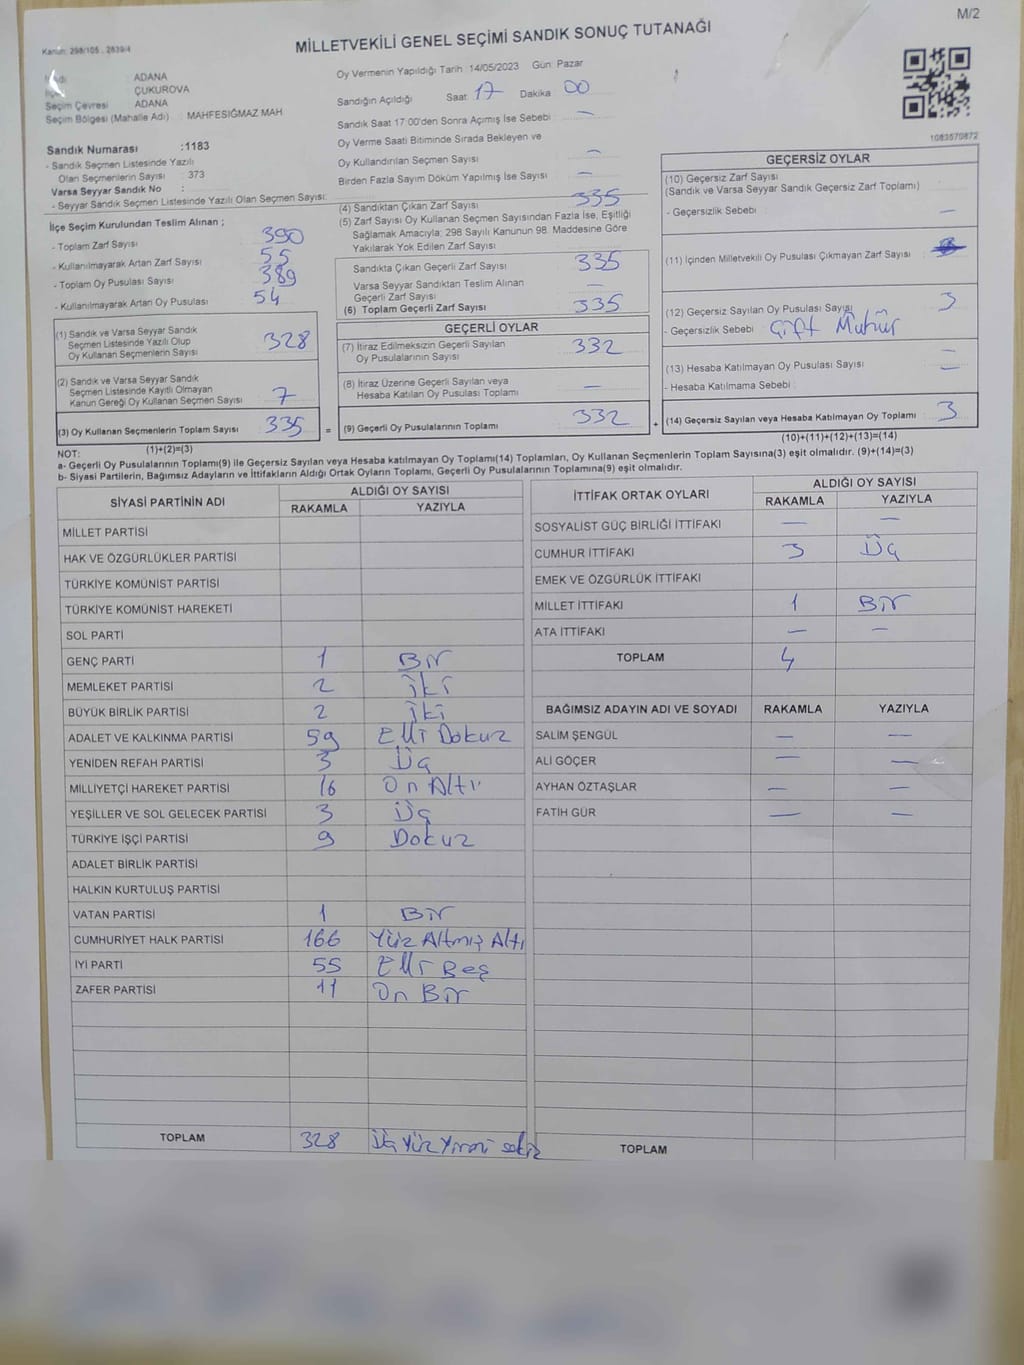 M/2
Kanun: 298/105 , 2839/4
MİLLETVEKİLİ GENEL SEÇİMİ SANDIK SONUÇ TUTANAĞI
ADANA
ÇUKUROVA
Seçim Çevresi ADANA
Seçim Bölgesi (Mahalle Adı) : MAHFESIĞMAZ MAH
Oy Vermenin Yapıldığı Tarih :14/05/2023 Gün: Pazar
Sandığın Açıldığı Saat 17 Dakika 00
Sandık Saat 17:00'den Sonra Açılmış İse Sebebi : —
Oy Verme Saati Bitiminde Sırada Bekleyen ve
Oy Kullandırılan Seçmen Sayısı —
Birden Fazla Sayım Döküm Yapılmış İse Sayısı —
1083570872
Sandık Numarası :1183
- Sandık Seçmen Listesinde Yazılı
Olan Seçmenlerin Sayısı : 373
Varsa Seyyar Sandık No :
- Seyyar Sandık Seçmen Listesinde Yazılı Olan Seçmen Sayısı:
İlçe Seçim Kurulundan Teslim Alınan ;
- Toplam Zarf Sayısı 390
- Kullanılmayarak Artan Zarf Sayısı 55
- Toplam Oy Pusulası Sayısı 389
- Kullanılmayarak Artan Oy Pusulası 54
(1) Sandık ve Varsa Seyyar Sandık
Seçmen Listesinde Yazılı Olup
Oy Kullanan Seçmenlerin Sayısı 328
(2) Sandık ve Varsa Seyyar Sandık
Seçmen Listesinde Kayıtlı Olmayan
Kanun Gereği Oy Kullanan Seçmen Sayısı 7
(3) Oy Kullanan Seçmenlerin Toplam Sayısı 335 =
(1)+(2)=(3)
(4) Sandıktan Çıkan Zarf Sayısı 335
(5) Zarf Sayısı Oy Kullanan Seçmen Sayısından Fazla İse, Eşitliği
Sağlamak Amacıyla; 298 Sayılı Kanunun 98. Maddesine Göre
Yakılarak Yok Edilen Zarf Sayısı
Sandıkta Çıkan Geçerli Zarf Sayısı 335
Varsa Seyyar Sandıktan Teslim Alınan
Geçerli Zarf Sayısı —
(6) Toplam Geçerli Zarf Sayısı 335
GEÇERLİ OYLAR
(7) İtiraz Edilmeksizin Geçerli Sayılan
Oy Pusulalarının Sayısı 332
(8) İtiraz Üzerine Geçerli Sayılan veya
Hesaba Katılan Oy Pusulası Toplamı —
(9) Geçerli Oy Pusulalarının Toplamı 332 +
GEÇERSİZ OYLAR
(10) Geçersiz Zarf Sayısı
(Sandık ve Varsa Seyyar Sandık Geçersiz Zarf Toplamı)
- Geçersizlik Sebebi : —
(11) İçinden Milletvekili Oy Pusulası Çıkmayan Zarf Sayısı
(12) Geçersiz Sayılan Oy Pusulası Sayısı 3
- Geçersizlik Sebebi : Çift Mühür
(13) Hesaba Katılmayan Oy Pusulası Sayısı —
- Hesaba Katılmama Sebebi : —
(14) Geçersiz Sayılan veya Hesaba Katılmayan Oy Toplamı 3
(10)+(11)+(12)+(13)=(14)
NOT:
a- Geçerli Oy Pusulalarının Toplamı(9) ile Geçersiz Sayılan veya Hesaba katılmayan Oy Toplamı(14) Toplamları, Oy Kullanan Seçmenlerin Toplam Sayısına(3) eşit olmalıdır. (9)+(14)=(3)
b- Siyasi Partilerin, Bağımsız Adayların ve İttifakların Aldığı Ortak Oyların Toplamı, Geçerli Oy Pusulalarının Toplamına(9) eşit olmalıdır.
SİYASİ PARTİNİN ADI ALDIĞI OY SAYISI
RAKAMLA YAZIYLA
MİLLET PARTİSİ
HAK VE ÖZGÜRLÜKLER PARTİSİ
TÜRKİYE KOMÜNİST PARTİSİ
TÜRKİYE KOMÜNİST HAREKETİ
SOL PARTİ
GENÇ PARTİ 1 Bir
MEMLEKET PARTİSİ 2 İki
BÜYÜK BİRLİK PARTİSİ 2 İki
ADALET VE KALKINMA PARTİSİ 59 Elli Dokuz
YENİDEN REFAH PARTİSİ 3 Üç
MİLLİYETÇİ HAREKET PARTİSİ 16 On Altı
YEŞİLLER VE SOL GELECEK PARTİSİ 3 Üç
TÜRKİYE İŞÇİ PARTİSİ 9 Dokuz
ADALET BİRLİK PARTİSİ
HALKIN KURTULUŞ PARTİSİ
VATAN PARTİSİ 1 Bir
CUMHURİYET HALK PARTİSİ 166 Yüz Altmış Altı
İYİ PARTİ 55 Elli Beş
ZAFER PARTİSİ 11 On Bir
TOPLAM 328 Üç Yüz Yirmi sekiz
İTTİFAK ORTAK OYLARI ALDIĞI OY SAYISI
RAKAMLA YAZIYLA
SOSYALİST GÜÇ BİRLİĞİ İTTİFAKI — —
CUMHUR İTTİFAKI 3 Üç
EMEK VE ÖZGÜRLÜK İTTİFAKI
MİLLET İTTİFAKI 1 Bir
ATA İTTİFAKI — —
TOPLAM 4
BAĞIMSIZ ADAYIN ADI VE SOYADI RAKAMLA YAZIYLA
SALİM ŞENGÜL — —
ALİ GÖÇER — —
AYHAN ÖZTAŞLAR — —
FATİH GÜR — —
TOPLAM